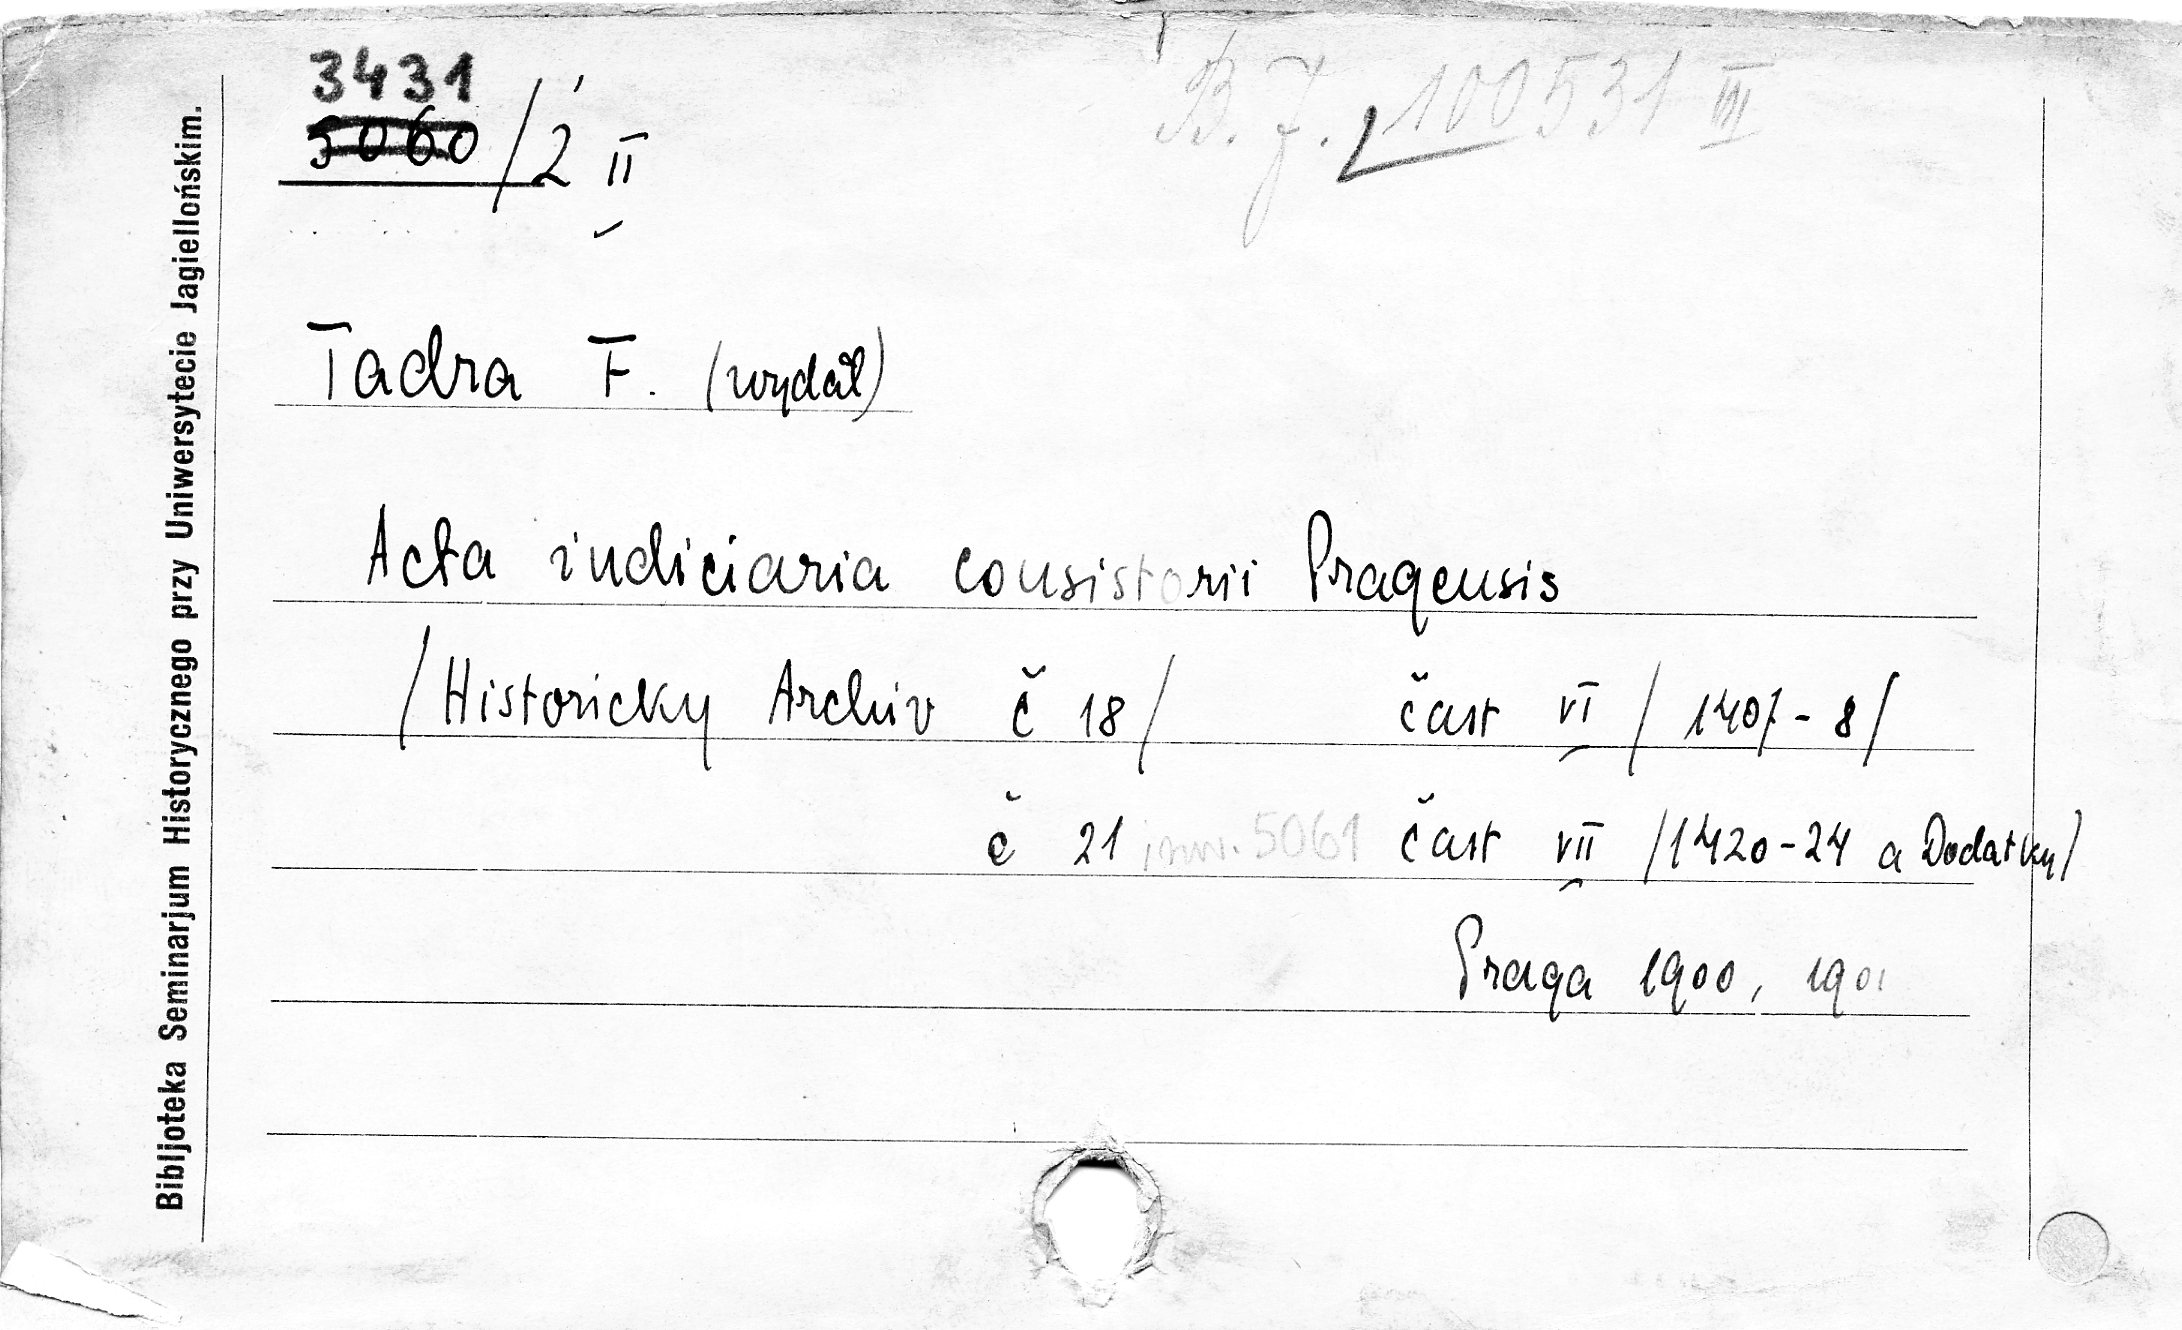 3431
5060 /2 II
B. J. 100531 III
Bibljoteka Seminarjum Historycznego przy Uniwersytecie Jagiellońskim.
Tadra F. (wydał)
Acta iudiciaria consistorii Pragensis
/Historicky Archiv č 18/ čast VI /1407-8/
č 21 inw. 5061 čast VII /1420-24 a Dodatky/
Praga 1900, 1901